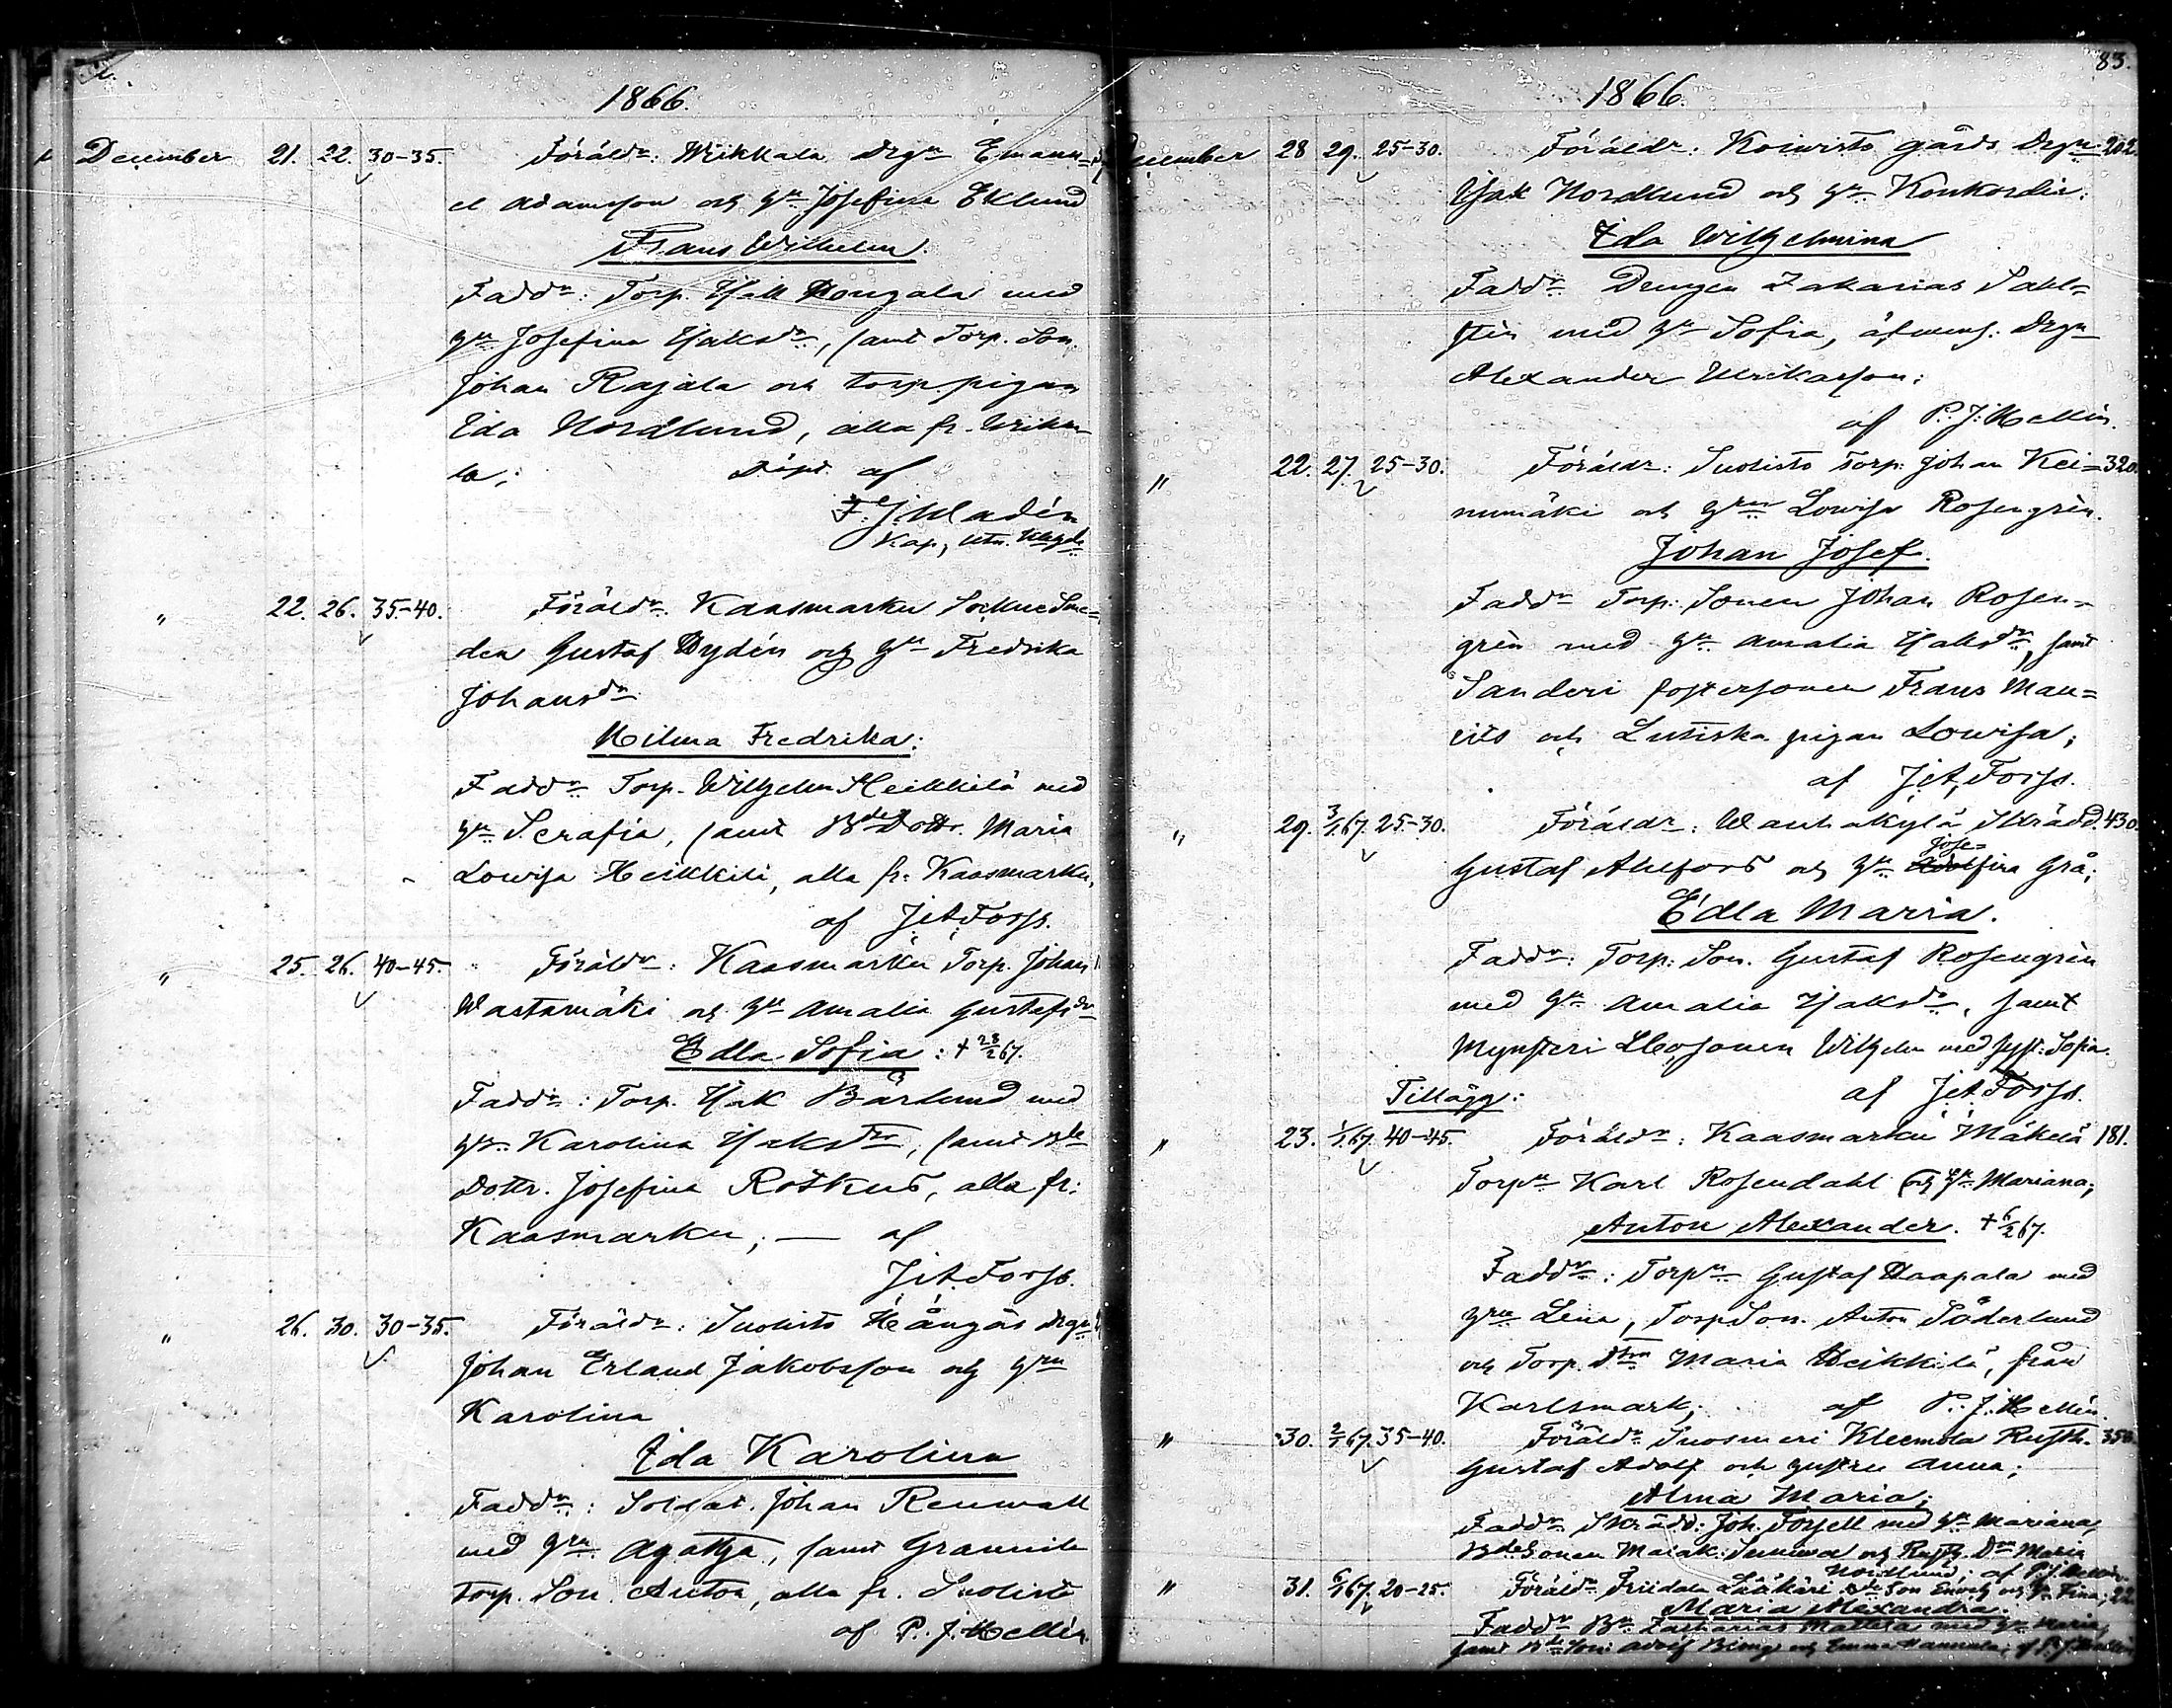 1866.
December 21. 22. 30-35. Föräldr: Wrikkala drgn Emanu=
el Adamsson och hn Josefina Eklund
Frans Wilhelm.
Faddr: Torp. Isak med
hn Josefina Isaksdr, samt Torp. Son.
Johan Rajala och torp. pigan
Ida Nordlund, alla fr.
la; döpt af
Kap.
" 22. 26. 35-40. Föräldr: Kaasmarku Sockne Sme=
den Gustaf Rydén och hn Fredrika
Johansdr
Hilma Fredrika:
Faddr Torp. Wilhelm Heikkilä med
hn Serafia, samt Bde Dottr. Maria
Lowisa Heikkilä, alla fr. Kaasmarku,
af J. A. Forss.
" 25. 26. 40-45. Föräldr: Kaasmarku Torp. Johan
Wastamäki och hn Amalia Gustafsdr
Edla Sofia: + 23/2 67.
Faddr: Torp. Isak Bärlund med
hn Karolina Isaksdr, samt Bde
Dottr. Josefina Rotkus, alla fr:
Kaasmarku; — af
J. A. Forss.
" 26. 30. 30-35. Föräldr: Suolisto Hångås drgn
Johan Erland Jakobsson och hru
Karolina
Ida Karolina
Faddr: Soldat. Johan Renwall
med hru Agatha, samt Grannila
Torp. Son Anton, alla fr. Suolisto
af P. J. Hellén.
83.
1866.
December 28 29. 25-30. Föräldr: Koiwisto gårds Drgn 202.
Isak Nordlund och hn Konkordia:
Ida Wilhelmina
Faddr Drengen Zakarias Sahl=
sten med hn Sofia, äfwens. Drgn
Alexander Ulrikasson;
af P. J. Hellén.
" 22. 27. 25-30. Föräldr: Suolisto Torp: Johan Kei= 320.
numäki och hrun Lowisa Rosengrén.
Johan Josef.
Faddr Torp: Sonen Johan Rosen=
grén med hn Amalia Isaksdr, samt
Sanderi fostersonen Frans Mau=
rits och Lutiska pigan Lowisa;
af J. A. Forss.
" 29. 3/1 67. 25-30. Föräldr: Wanhakylä Skrädd. 430.
Jose=
Gustaf Ahlfors och hn Adolfina Grå;
Edla Maria.
Faddr: Torp: Son. Gustaf Rosengrén
med hn Amalia Isaksdr, samt
Mynsteri Wilhelm med syst: Sofia.
Tillägg: af J. A. Forss.
" 23. 1/1 67. 40-45. Föräldr: Kaasmarku Mäkelä 181.
Torpn Karl Rosendahl och hn Mariana;
Anton Alexander. + 6/2 67.
Faddr: Torpn Gustaf Haapala med
hru Lena, Torp Son. Anton Söderlund
och Torp. Dtrn Maria Heikkilä, från
Karlsmark; af P. J. Hellén.
" 30. 2/1 67. 35-40. Föräldr Suosmeri Kleemola Rusth. 350.
Gustaf Adolf och hustru Anna;
Alma Maria;
Faddr Skrädd: Joh. Forsell med hn Mariana,
Bde Sonen Maiak och Rusth. Drn Maria
Nordlund; af P. J. Hellén.
" 31. 6/1 67. 20-25. Föräldr Friidala Lääkäri Bde Son och hn Fina; 22
Maria Alexandra.
Faddr Bn Zacharias Mattila med hn Maria,
samt Bde Son: Adolf och Emma Hannula; af P. J. Hellén